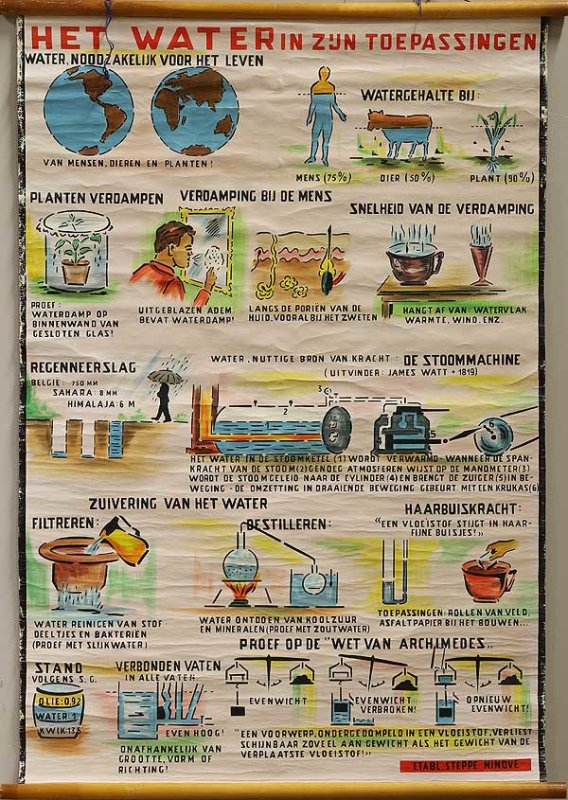 HET WATER IN ZIJN TOEPASSINGEN
WATER, NOODZAKELIJK VOOR HET LEVEN
VAN MENSEN, DIEREN EN PLANTEN!
WATERGEHALTE BIJ:
MENS (75%)
DIER (50%)
PLANT (90%)
PLANTEN VERDAMPEN
PROEF:
WATERDAMP OP
BINNENWAND VAN
GESLOTEN GLAS!
VERDAMPING BIJ DE MENS
UITGEBLAZEN ADEM
BEVAT WATERDAMP!
LANGS DE PORIËN VAN DE
HUID, VOORAL BIJ HET ZWETEN
SNELHEID VAN DE VERDAMPING
HANGT AF VAN: WATERVLAK
WARMTE, WIND, ENZ.
REGENNEERSLAG
BELGIE: 750 MM
SAHARA: 8 MM
HIMALAJA: 6 M
WATER, NUTTIGE BRON VAN KRACHT: DE STOOMMACHINE
(UITVINDER: JAMES WATT + 1819)
1
2
3
5
6
HET WATER IN DE STOOMKETEL (1) WORDT VERWARMD - WANNEER DE SPAN-
KRACHT VAN DE STOOM (2) GENOEG ATMOSFEREN WIJST OP DE MANOMETER (3)
WORDT DE STOOM GELEID NAAR DE CYLINDER (4) EN BRENGT DE ZUIGER (5) IN BE-
WEGING - DE OMZETTING IN DRAAIENDE BEWEGING GEBEURT MET EEN KRUKAS (6)
ZUIVERING VAN HET WATER
FILTREREN:
WATER REINIGEN VAN STOF
DEELTJES EN BAKTERIËN
(PROEF MET SLIJKWATER)
BESTILLEREN:
WATER ONTDOEN VAN KOOLZUUR
EN MINERALEN (PROEF MET ZOUTWATER)
HAARBUISKRACHT:
"EEN VLOEISTOF STIJGT IN HAAR-
FIJNE BUISJES!"
TOEPASSINGEN: ROLLEN VAN VELD,
ASFALTPAPIER BIJ HET BOUWEN...
STAND
VOLGENS S.G.
OLIE: 0,92
WATER: 1
KWIK: 13,5
VERBONDEN VATEN
IN ALLE VATEN
EVEN HOOG!
ONAFHANKELIJK VAN
GROOTTE, VORM OF
RICHTING!
PROEF OP DE "WET VAN ARCHIMEDES"
EVENWICHT
EVENWICHT
VERBROKEN!
OPNIEUW
EVENWICHT!
"EEN VOORWERP, ONDERGEDOMPELD IN EEN VLOEISTOF, VERLIEST
SCHIJNBAAR ZOVEEL AAN GEWICHT ALS HET GEWICHT VAN DE
VERPLAATSTE VLOEISTOF!"
ETABL. STEPPE NINOVE